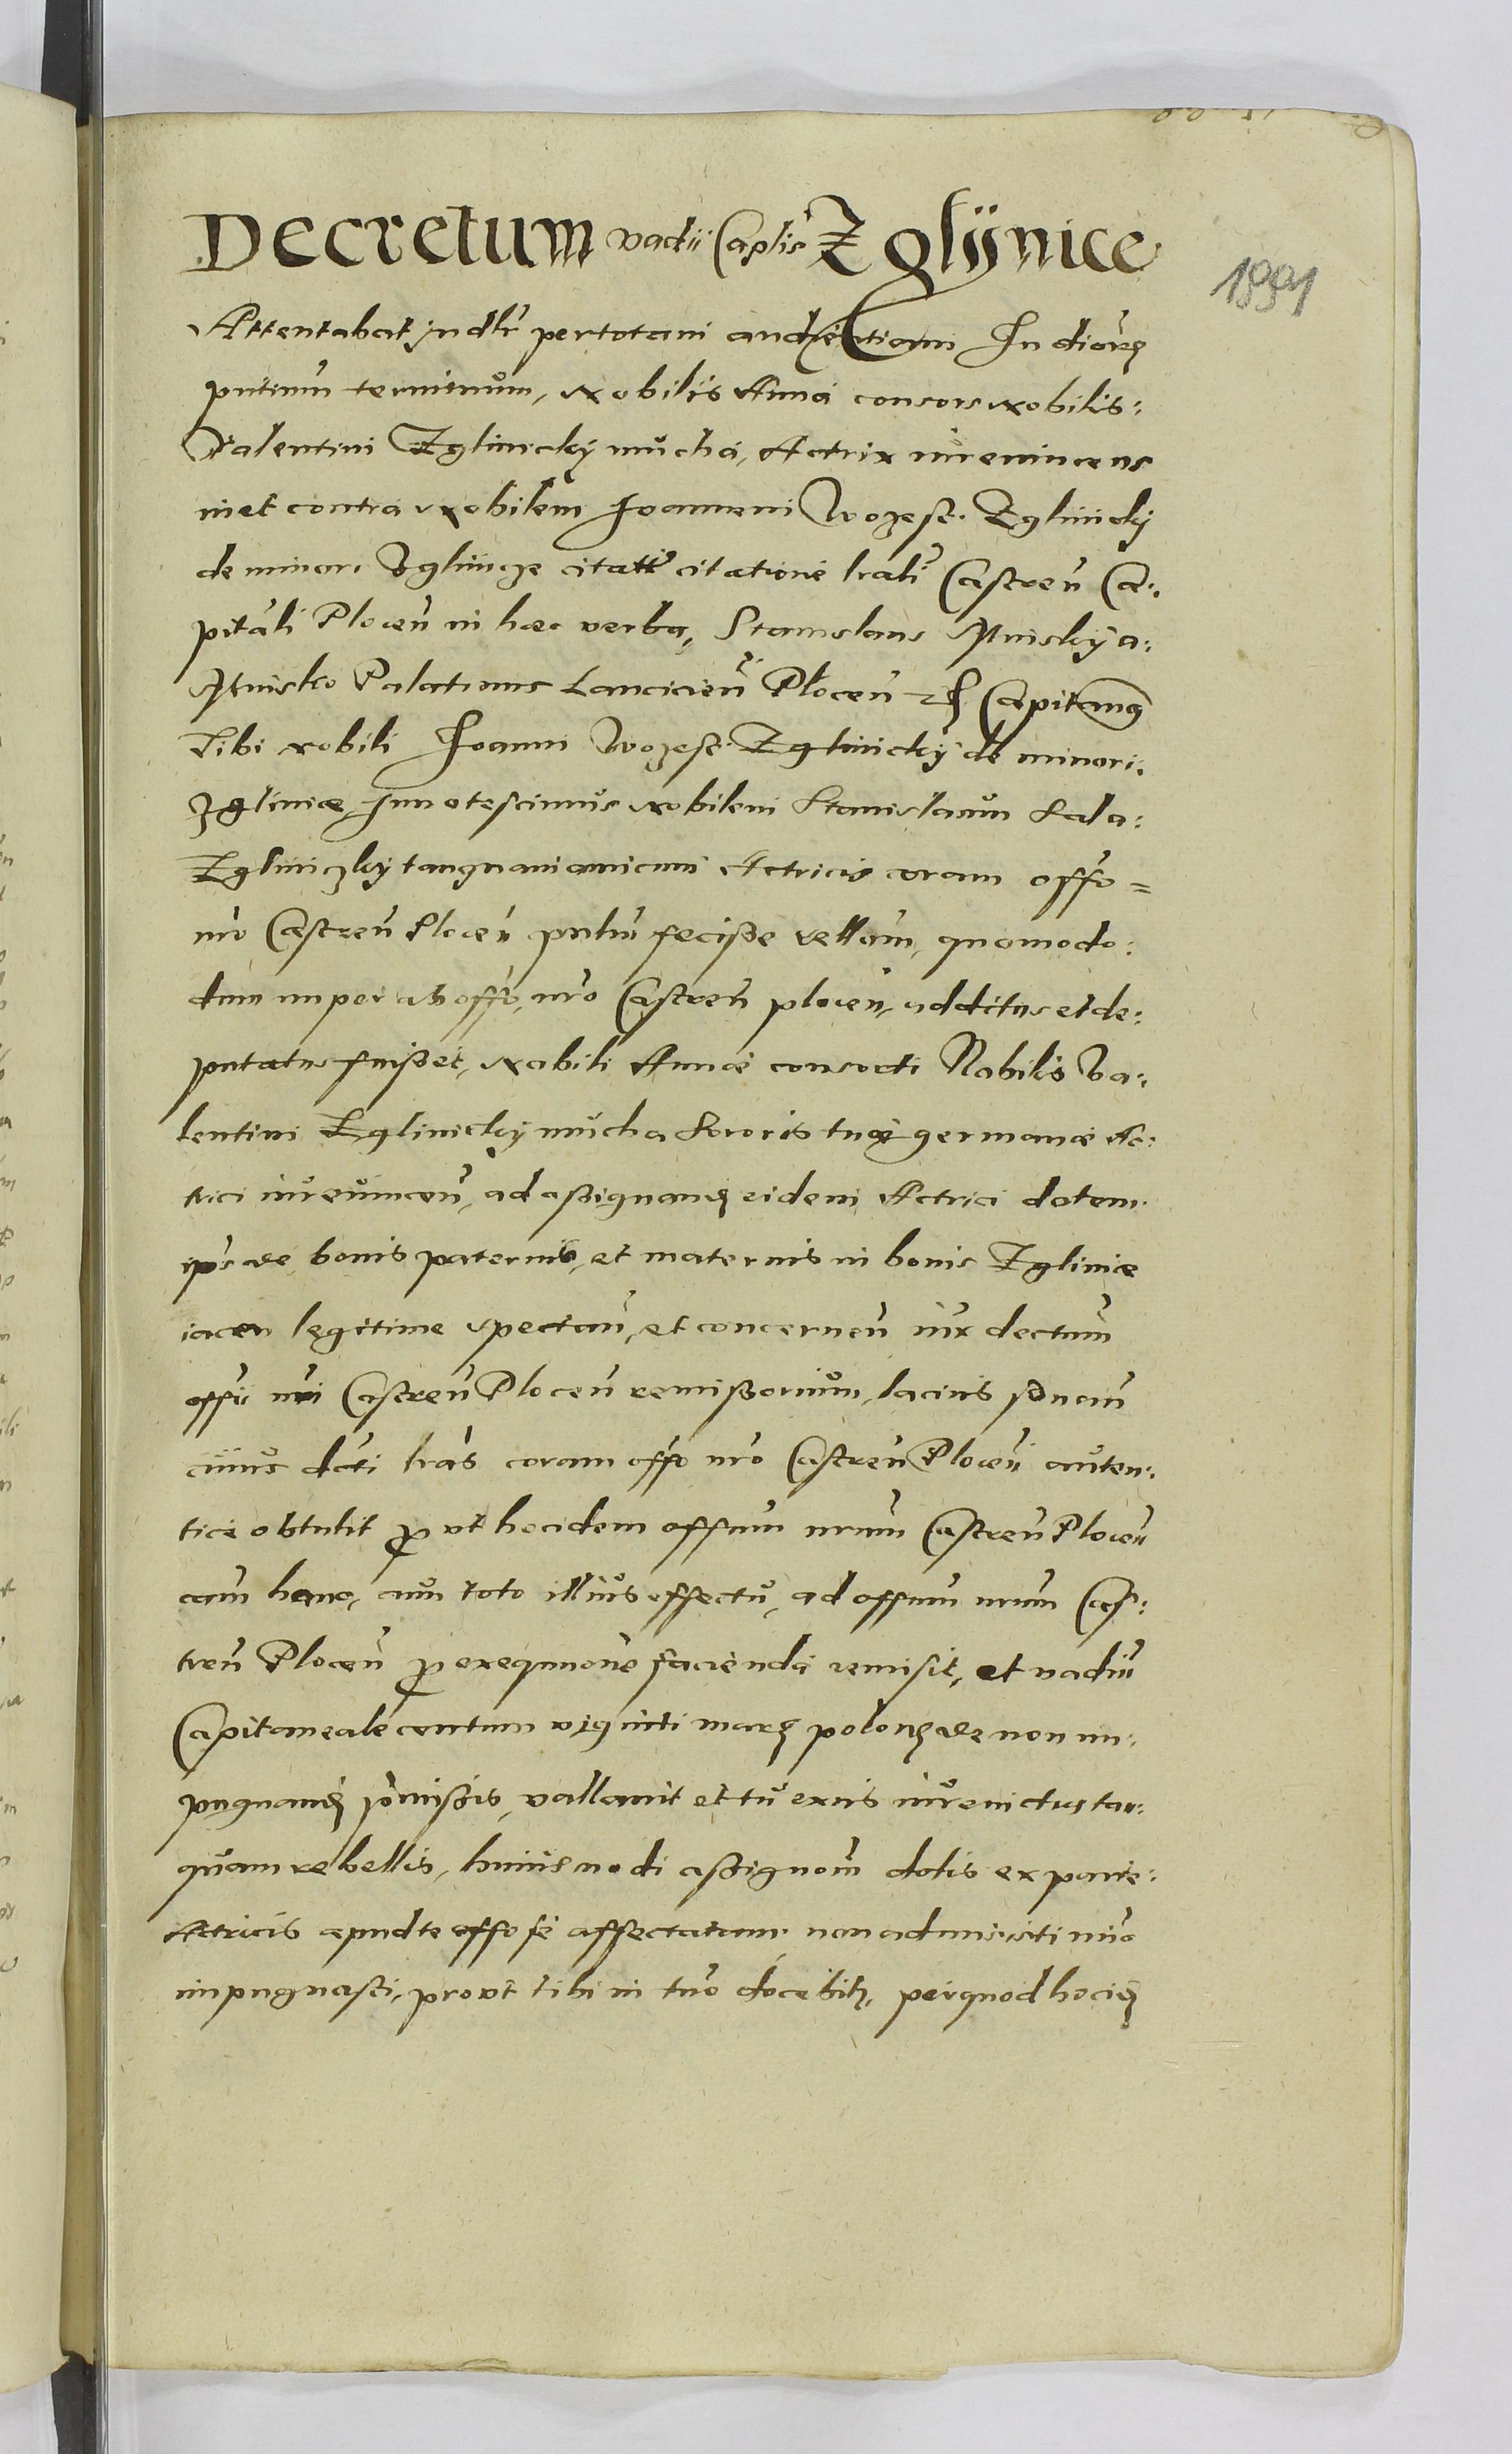 Decretum vadii Caplis Zglÿnice
1891
Attentabat judlr per totam audientiam In diorz
pntium terminum, Nobilis Anna consors Nobilis:
Valentini Zglinickÿ mucha, Actrix iurevincens
in et contra Nobilem Joannem Wozest. Zglinickÿ
de minori Zglinicze citatu citatione lrali Castren Ca:
pitali Plocen in haec verba, Stanislaus Minskÿ a:
Minsko Palatinus Lancicien Plocen Capitaneus
Tibi nobili Joanni Wozest. Zglinickÿ de minori.
Zglinice Innotescimus nobilem Stanislaum Lada:
Zgliniczkÿ tanquam amicum Actricis coram offo=
nro Castren Plocen pntim fecisse rellam, quomodo:
dum nuper ab offo, nro Castren plocen, additus et de:
putatus fuisset, Nobili Annae consorti Nobilis Va:
lentini Zglinickÿ mucha sororis tuae germanae Ac:
trici iurevincen, ad assignand eidem Actrici dotem
ips de bonis paternis, et maternis in bonis Zglinice
iacen legitime spectan, et concernen iux dectum
offii nri Castren Plocen remissorium, lacius
cuius dcti lras coram offo nro Castren Plocen auten:
tice obtulit prout hocidem offium nrum Castren Plocen
cam hanc, cum toto illius effectu, ad offium nrum Cas:
tren Plocen pro exequuone facienda remisit, et vadiu
Capitaneale centum viginti marz polonz de non im:
pugnand pmissis, vallauit et tu exnis iurevictus tan:
quam rebellis, huiusmodi assignom dotis ex parte:
Actricis apud te offose affectatam non admisisti imo
impugnasti, prout tibi in tmo docebitz, per quod hocidz